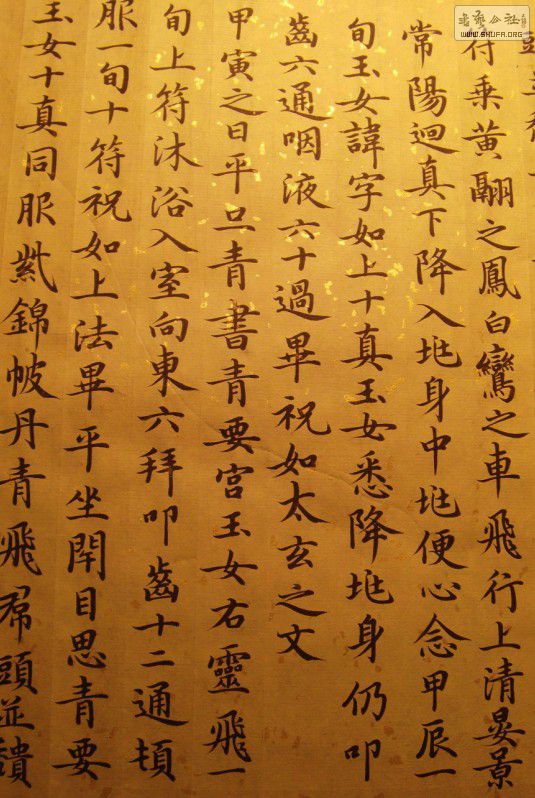 書藝公社
WWW.SHUFA.ORG
符乘黃翮之鳳白鸞之車飛行上清晏景
常陽迴真下降入兆身中兆便心念甲辰一
旬玉女諱字如上十真玉女悉降兆身仍叩
齒六通咽液六十過畢祝如太玄之文
甲寅之日平旦青書青要宮玉女右靈飛一
旬上符沐浴入室向東六拜叩齒十二通頓
服一旬十符祝如上法畢平坐閉目思青要
玉女十真同服紫錦帔丹青飛帬頭並頹